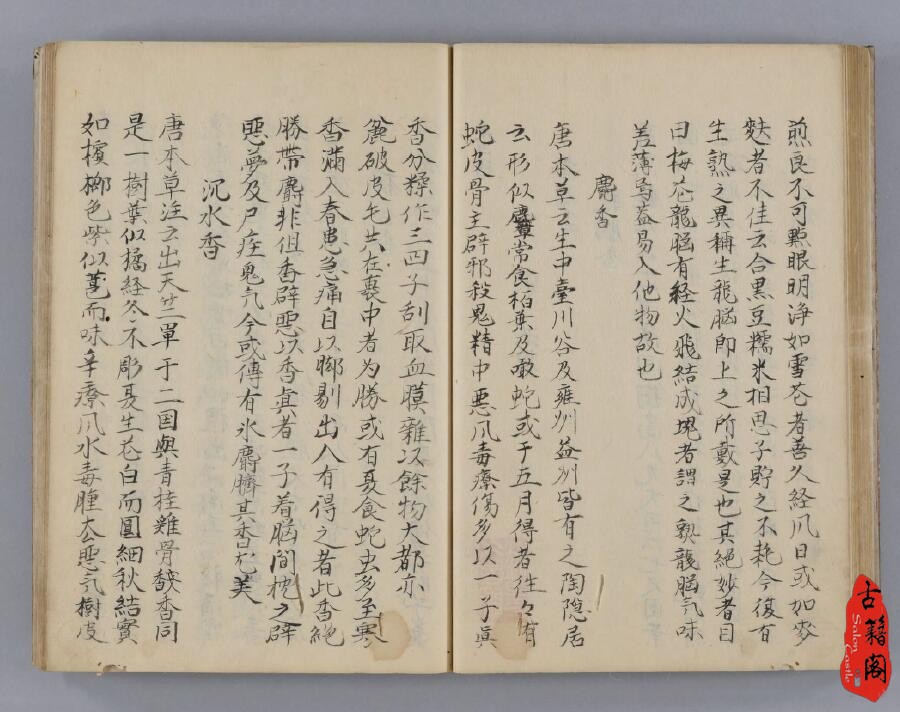 煎良不可點眼明浄如雪花者善久経風日或如麥
麩者不佳云合黒豆糯米相思子貯之不耗今復有
生熟之異稱生龍脳即上之所載是也其絶妙者曰
曰梅花龍脳有経火飛結成塊者謂之熟龍脳気味
差薄焉蓋易入他物故也
麝香
唐本草云生中臺川谷及雍州益州皆有之陶隠居
云形似麞常食栢葉及噉蛇或于五月得者往々有
蛇皮骨主辟邪殺鬼精中悪風毒療傷多以一子真
香分糅作三四子刮取血膜雜以餘物大都亦
麄破皮毛共在裹中者為勝或有夏食蛇虫多至寒
香滿入春患急痛自以脚剔出人有得之者此香絶
勝帶麝非但香辟悪以香真者一子着脳間枕之辟
悪夢及尸疰鬼気今或傳有氷麝臍其香尤美
沉水香
唐本草注云出天竺單于二国與青桂雞骨馢香同
是一樹葉似橘経冬不彫夏生花白而圓細秋結實
如檳榔色紫似葚而味辛療風水毒腫去悪気樹皮
古籍阁
Salon Castle